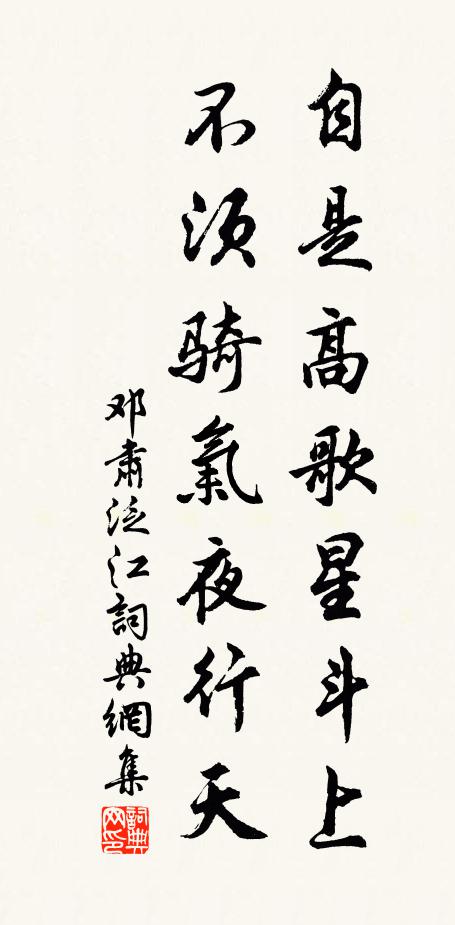 自是高歌星斗上
不须騎氣夜行天
邓肅泛江詞典網集
詞典
网印